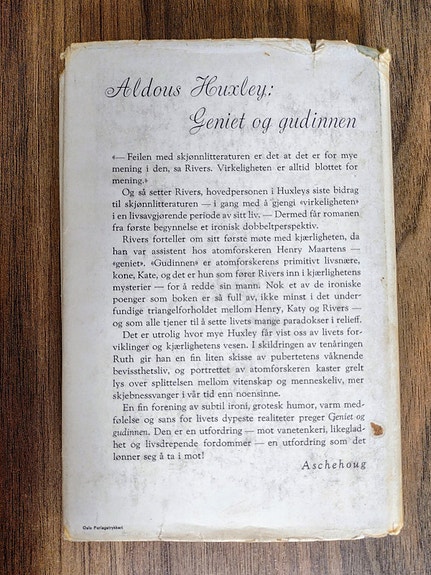 Aldous Huxley:
Geniet og gudinnen
«— Feilen med skjønnlitteraturen er det at det er for mye
mening i den, sa Rivers. Virkeligheten er alltid blottet for
mening.»
Og så setter Rivers, hovedpersonen i Huxleys siste bidrag
til skjønnlitteraturen — i gang med å gjengi «virkeligheten»
i en livsavgjørende periode av sitt liv. — Dermed får romanen
fra første begynnelse et ironisk dobbeltperspektiv.
Rivers forteller om sitt første møte med kjærligheten, da
han var assistent hos atomforskeren Henry Maartens —
«geniet». «Gudinnen» er atomforskerens primitivt livsnære,
kone, Kate, og det er hun som fører Rivers inn i kjærlighetens
mysterier — for å redde sin mann. Nok et av de ironiske
poenger som boken er så full av, ikke minst i det under-
fundige triangelforholdet mellom Henry, Katy og Rivers —
og som alle tjener til å sette livets mange paradokser i relieff.
Det er utrolig hvor mye Huxley får vist oss av livets for-
viklinger og kjærlighetens vesen. I skildringen av tenåringen
Ruth gir han en fin liten skisse av pubertetens våknende
bevissthetsliv, og portrettet av atomforskeren kaster grelt
lys over splittelsen mellom vitenskap og menneskeliv, mer
skjebnessvanger i vår tid enn noensinne.
En fin forening av subtil ironi, grotesk humor, varm med-
følelse og sans for livets dypeste realiteter preger Geniet og
gudinnen. Den er en utfordring — mot vanetenkeri, likeglad-
het og livsdrepende fordommer — en utfordring som det
lønner seg å ta i mot!
Aschehoug
Oslo Forlagstrykkeri